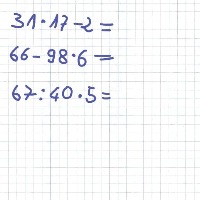 31·17-2=
66-98·6=
67:40·5=